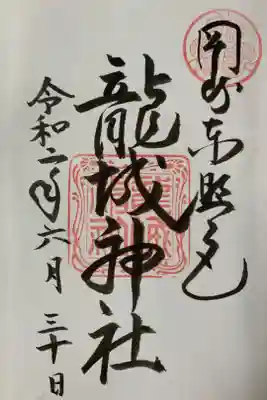 岡崎東照宮
龍城神社
令和二年六月三十日